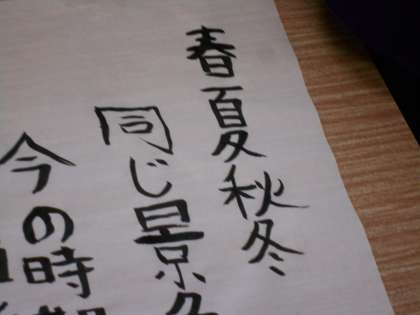 春夏秋冬
同じ景色
今の時期